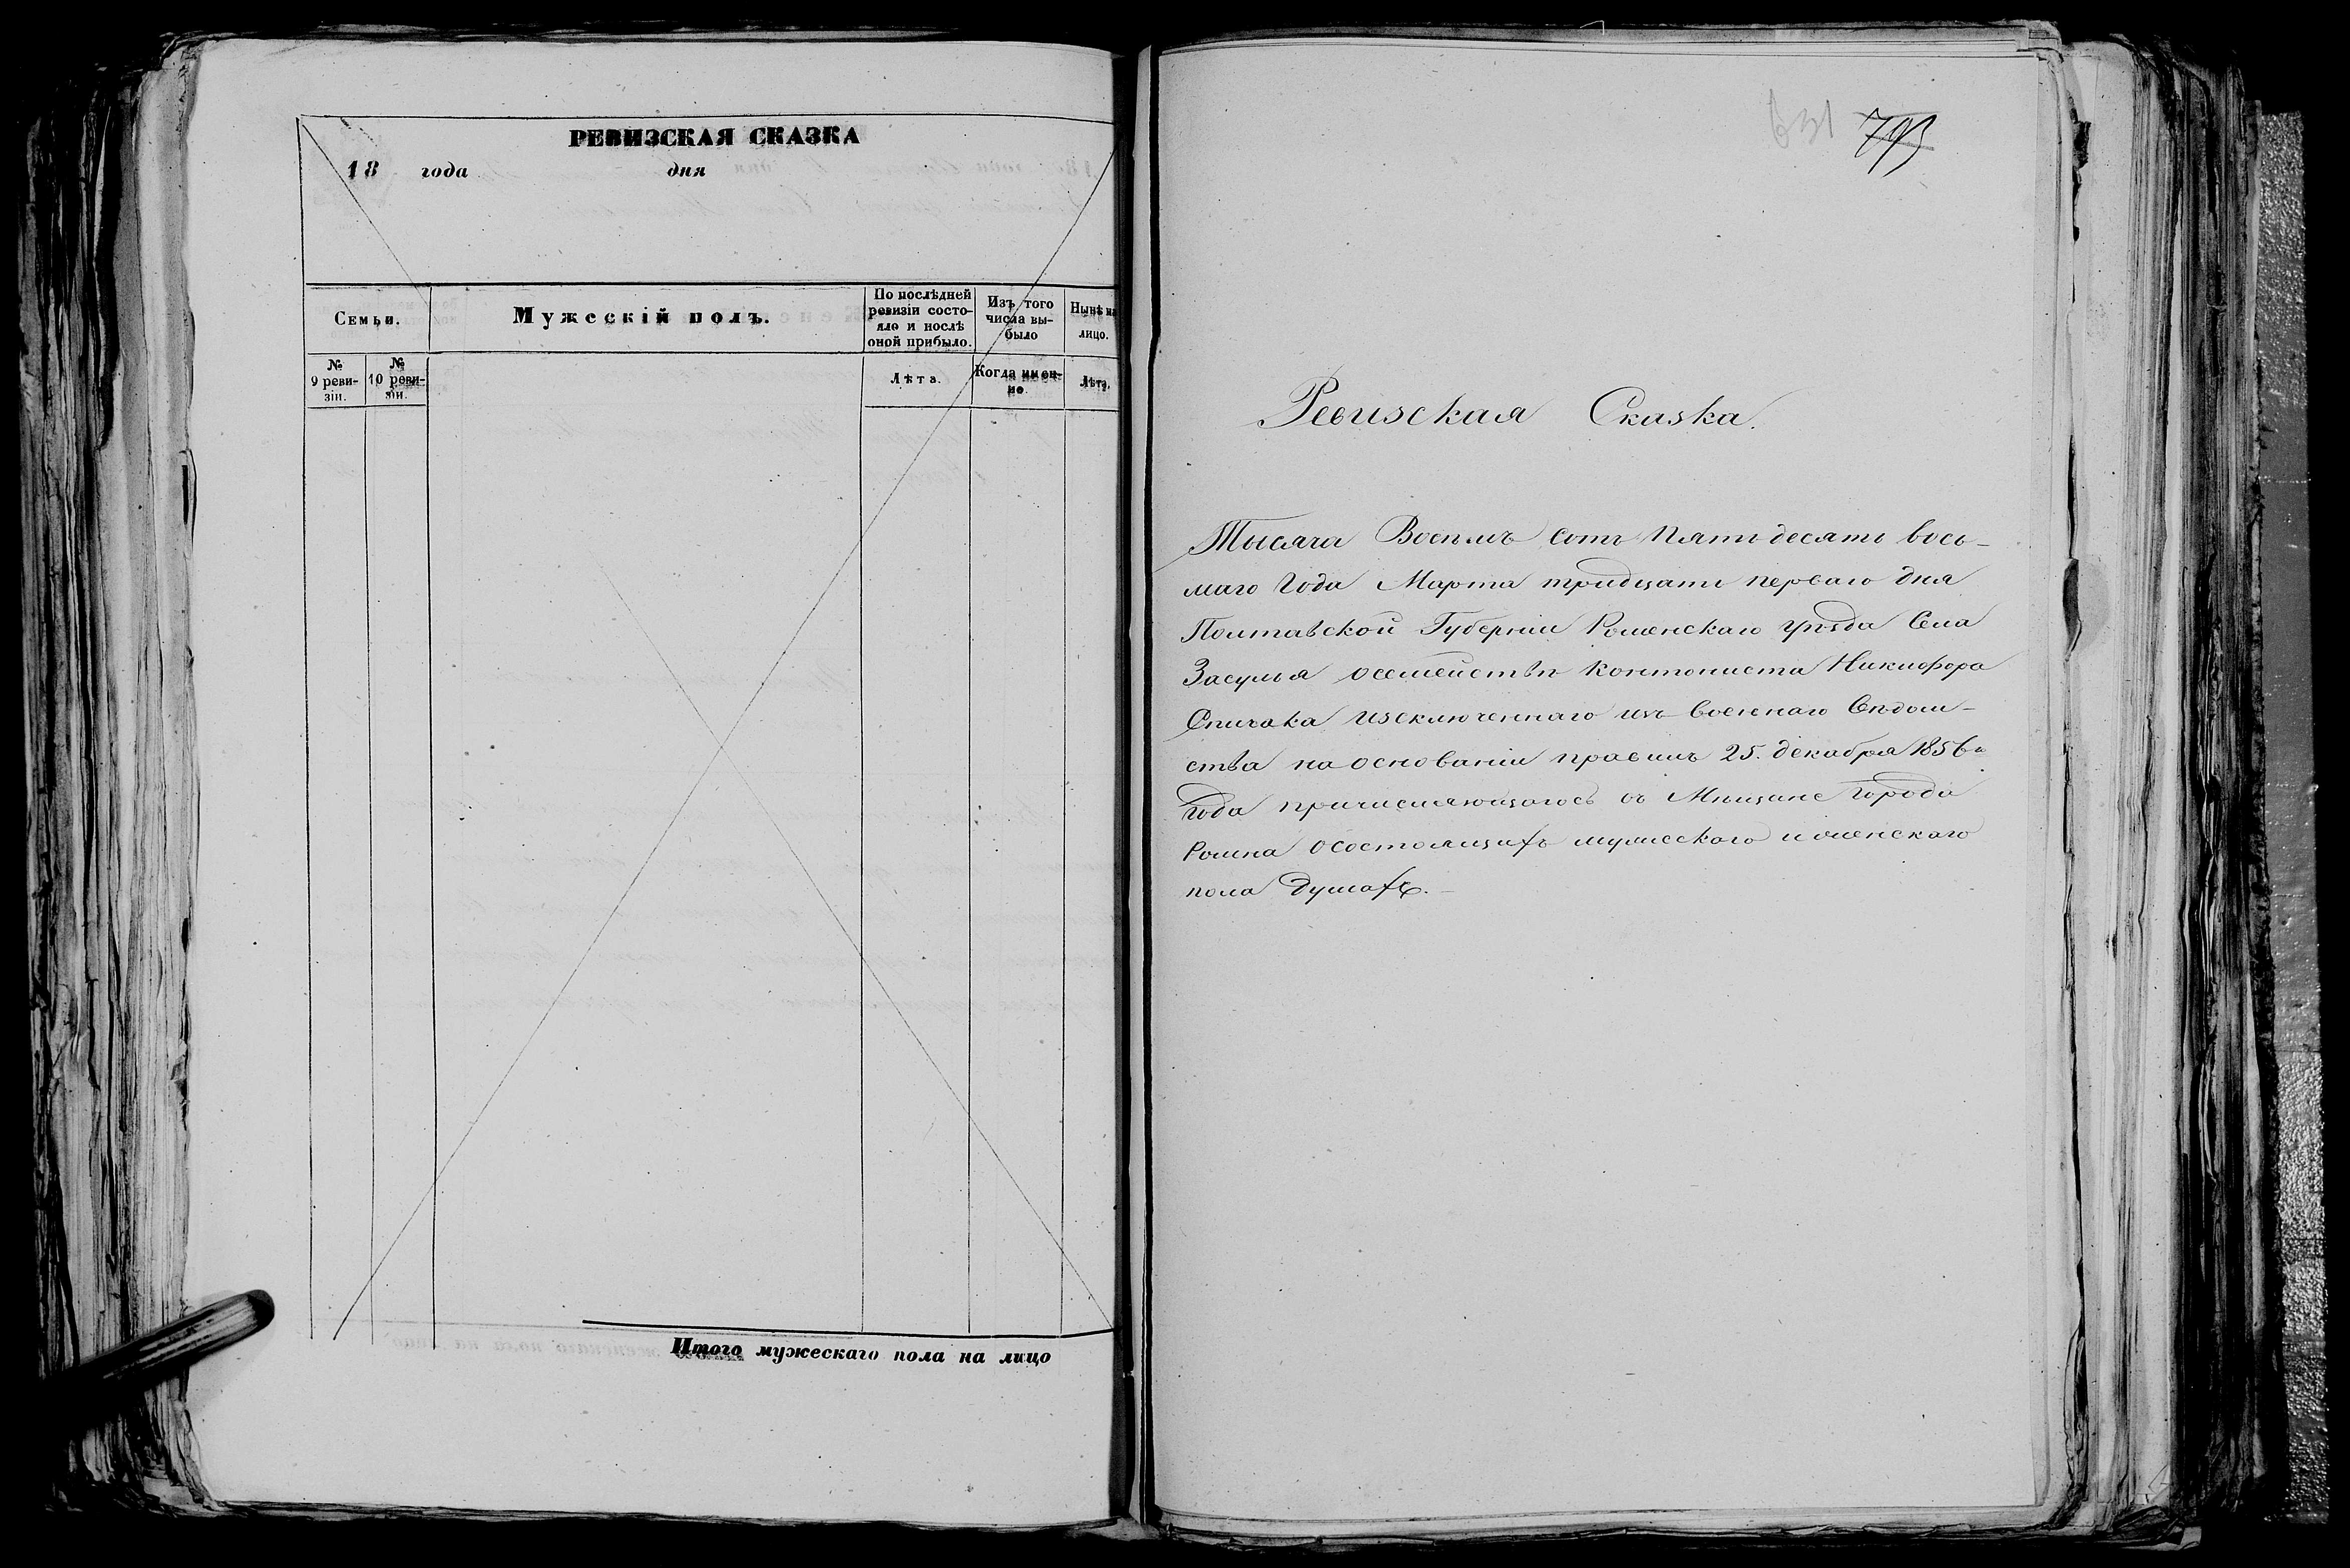 РЕВИЗСКАЯ СКАЗКА
18 года дня
Семьи.
Мужескій полъ.
По послѣдней
ревизіи состо-
яло и послѣ
оной прибыло.
Изъ того
числа вы-
было
Нынѣ на
лицо.
№
9 реви-
зіи.
№
10 реви-
зіи.
Лѣта.
Когда имен-
но.
Лѣта.
Итого мужескаго пола на лицо
631 793
Ревизская Сказка.
Тысяча Восемъ сотъ пятьдесятъ вось-
маго Года Марта тридцать перваго дня
Полтавской Губерніи Роменскаго уѣзда Села
Засулья осемействѣ Контониста Никифора
Спичака изсключеннаго изъ военнаго Вѣдом-
ства на основаніи правилъ 25. декабря 1856 го
года причисляющагось въ Мѣщане города
Ромна осостоящихъ мужескаго и женскаго
пола душахъ.